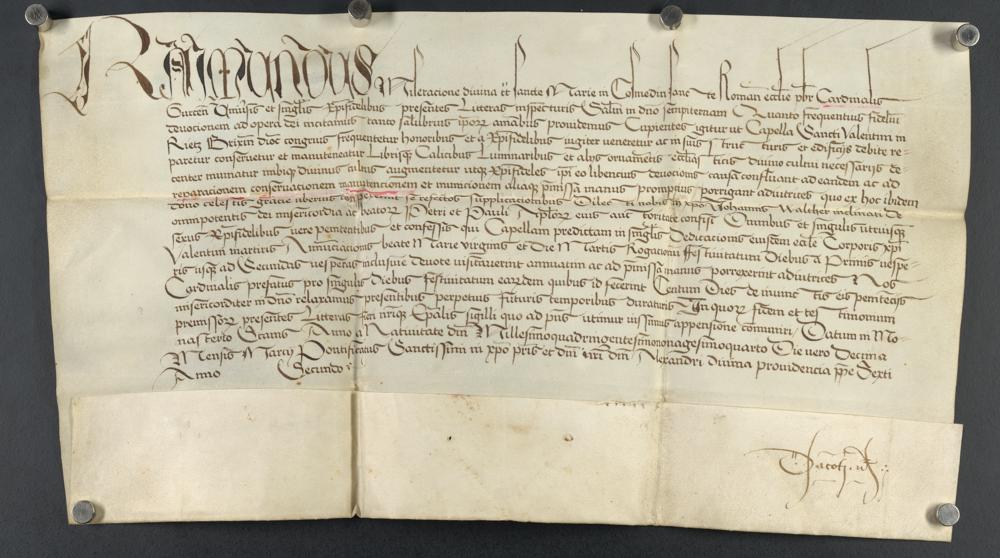 RAIMUNDUS Miseracione divina tt̄ Sancte Marie in Cosmedin Sancte Roman̄ ecclīe pbr̄ Cardinalis
Universis et singl̄is Xp̄ifidelibus presentes Litteras inspecturis Salūtm in dn̄o sempiternam Quanto frequentius fidelium
devocionem ad opera dei incitamus tanto salubrius ip̄orum animabus providemus Cupientes igitur ut Capella Sancti Valentini in
Rietz Brixin̄ dioc̄ congruis frequentetur honoribus et a Xp̄ifidelibus iugiter veneretur ac in suis structuris et edificijs debite re-
paretur conservetur et manuteneatur Librisqꝫ Calicibus Luminaribus et alijs ornamentis ecclesiasticis divino cultui necessarijs de-
center muniatur inibiqꝫ divinus cultus augmentetur utqꝫ Xp̄ifideles ip̄i eo libencius devocionis causa confluant ad eandem ac ad
reparacionem conservacionem manutencionem et municionem aliaqꝫ p̄missa manus promptius porrigant adiutrices quo ex hoc ibidem
dono celestis gracie uberius conspexerint se refectos supplicationibus Dilecti nobis in xp̄o Johannis Walcher molinari de
omnipotentis dei misericordia ac beatorum Petri et Pauli Ap̄lorum eius auctoritate confisi Omnibus et singulis utriusqꝫ
sexus Xp̄ifidelibus vere penitentibus et confessis qui Capellam predictam in singl̄is Dedicacionis eiusdem ecclīe Corporis xp̄i
Valentini martiris Annunciacionis beate Marie virginis et Die Martis Rogacionum Festivitatum Diebus a Primis vespe-
ris usqꝫ ad Secundas vesperas inclusive devote visitaverint annuatim ac ad p̄missa manus porrexerint adiutrices Nos
Cardinalis prefatus pro singulis diebus festivitatum earundem quibus id fecerint Centum Dies de iniunctis eis penitencijs
misericorditer in dn̄o relaxamus presentibus perpetuis futuris temporibus duraturis In quorum fidem et testimonium
premissorum presentes Litteras sigilli quo ad pn̄s utimur iussimus appensione communiri Datum in Mo-
nasterio Stams Anno a Nativitate dn̄i Millesimoquadringentesimononagesimoquarto Die vero Decima
Mensis Marcij Pontificatus Sanctissimi in xp̄o pr̄is et dn̄i nr̄i dn̄i Alexandri divina providencia pp̄e Sexti
Anno Secundo